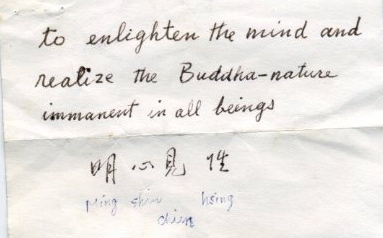 to enlighten the mind and
realize the Buddha-nature
immanent in all beings
明心見性
Ming shin hsing
chien